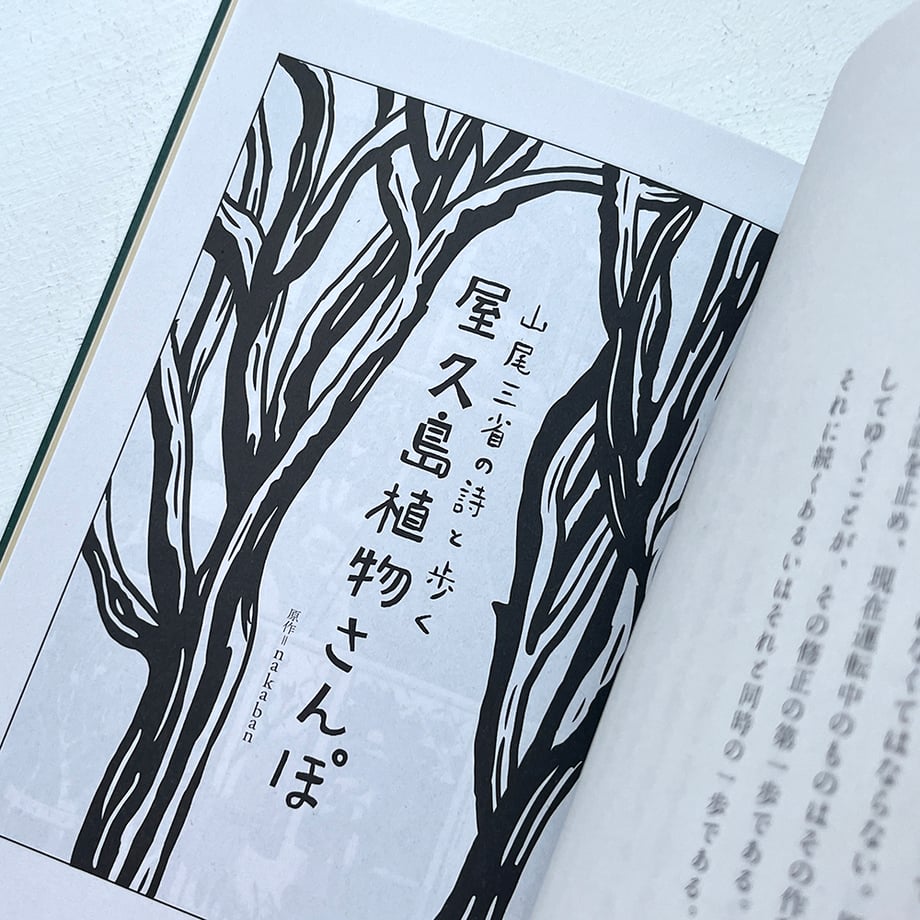 なくてはならない。
止め、現在運転中のものはその作
してゆくことが、その修正の第一歩である。
それに続くあるいはそれと同時の一歩である。
山尾三省の詩と歩く
屋久島植物さんぽ
原作=nakaban